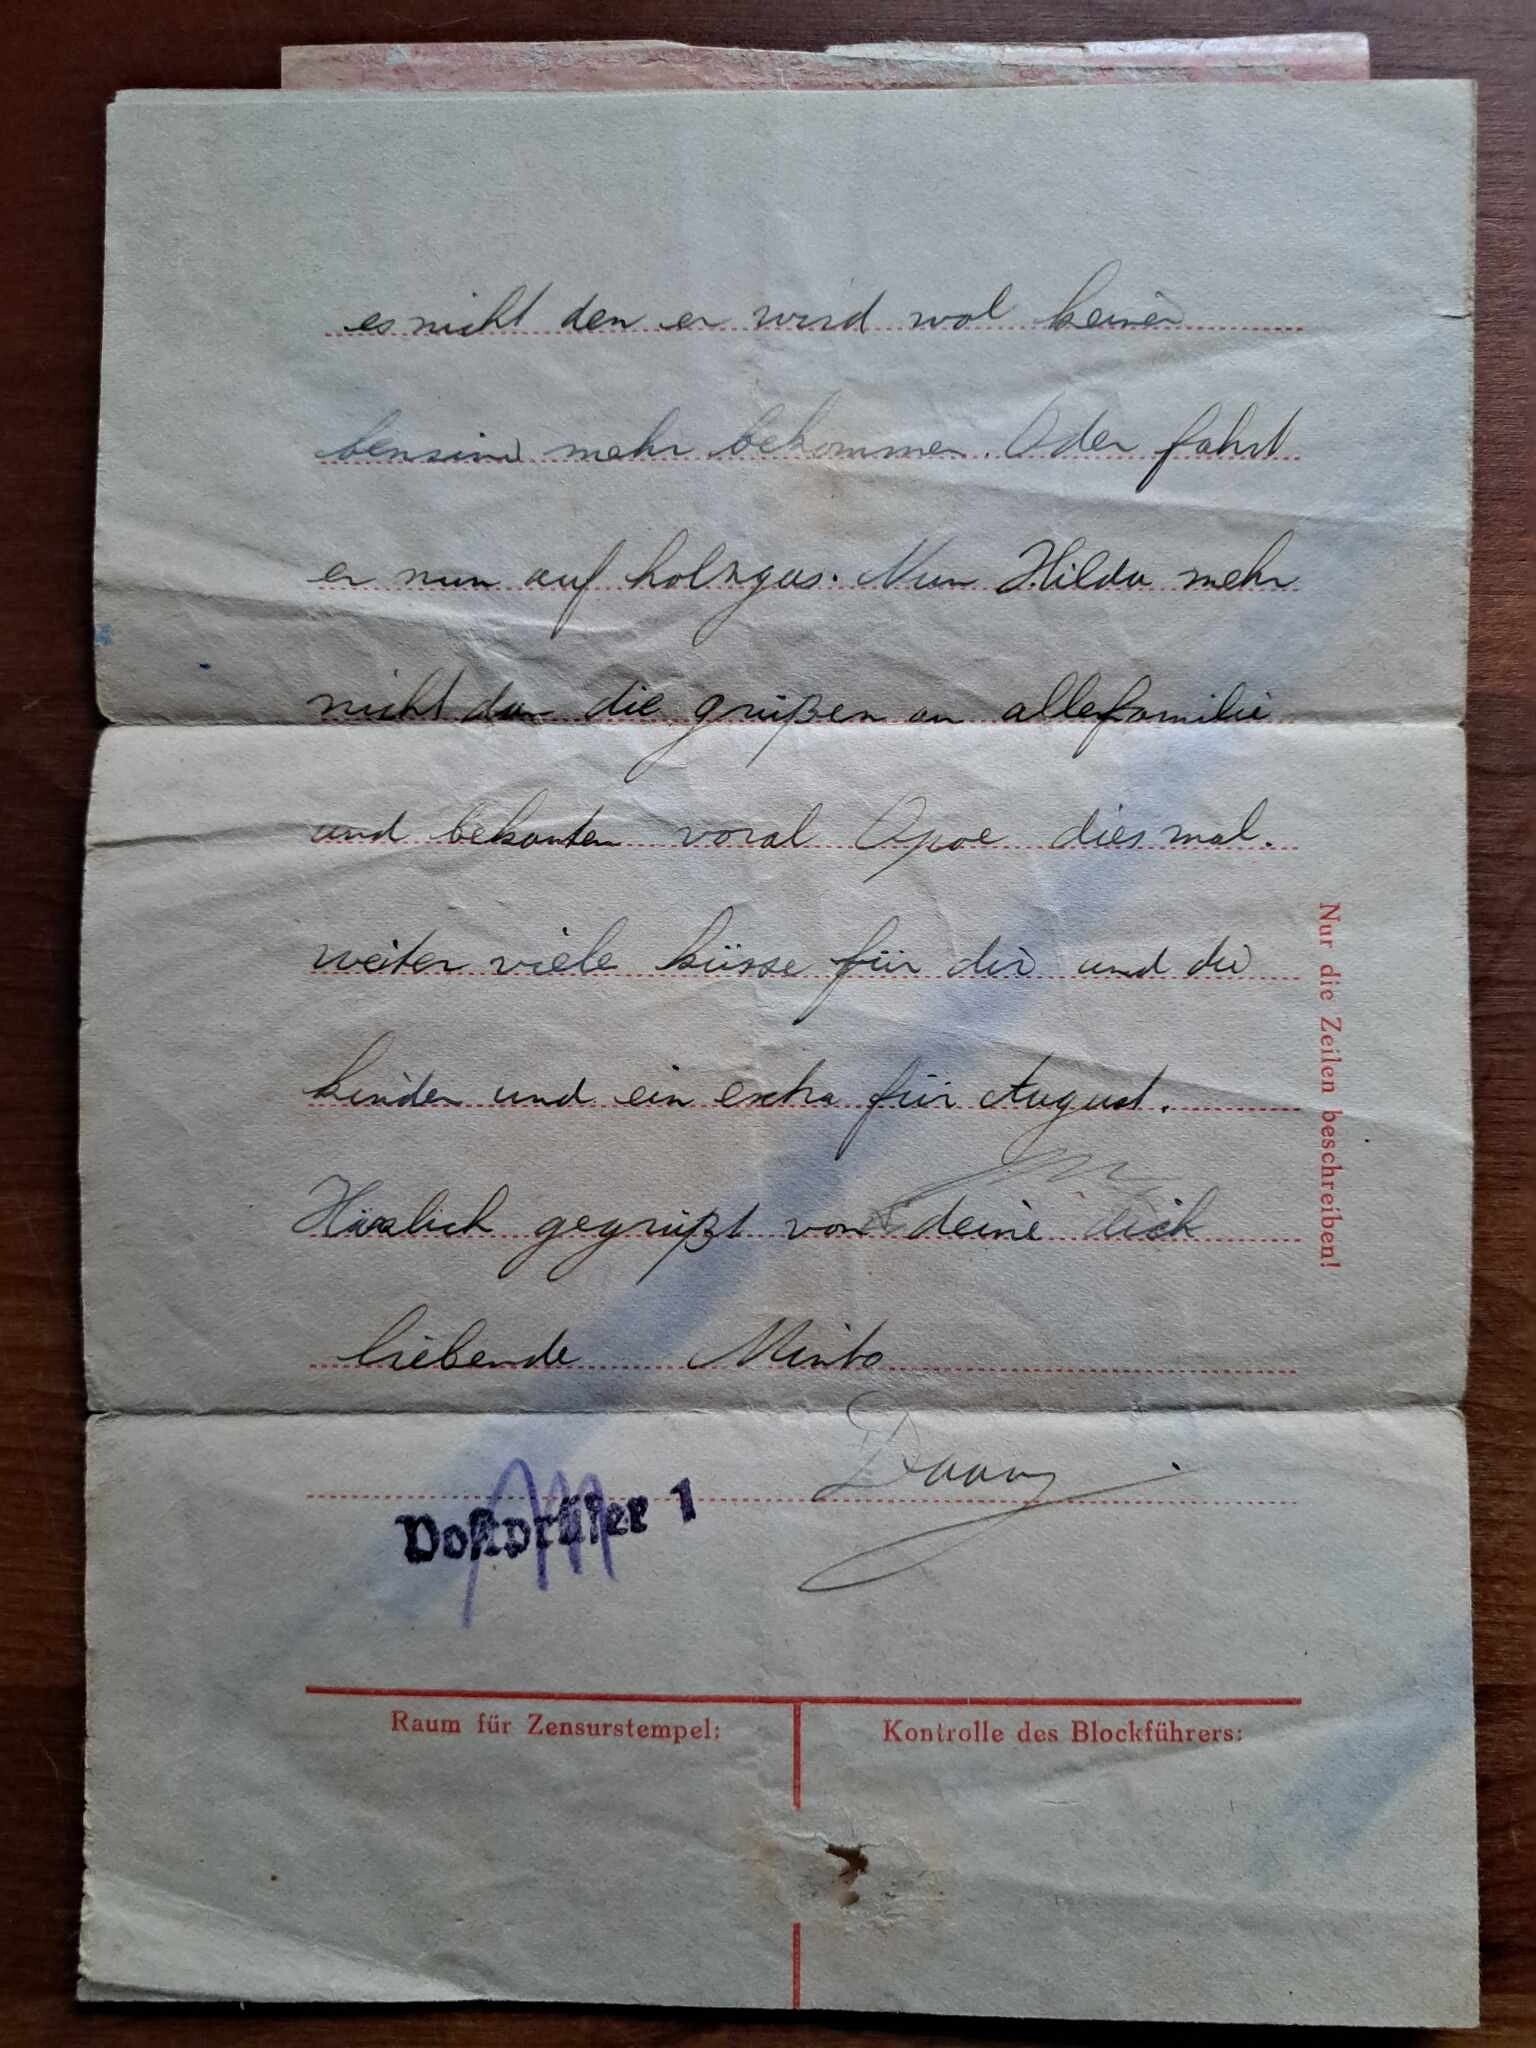 es nicht den er wird wol keine
bensine mehr bekommen. Oder fahrt
er nun auf holzgas. Nun Hilda mehr
nicht dan die grüßen an alle familie
und bekanten voral Opoe diesmal.
weiter viele küsse für dir und die
kinder und ein extra für August.
Härslich gegrüßt von deine dich
liebende Minto
Postprüfer 1
Nur die Zeilen beschreiben!
Raum für Zensurstempel:
Kontrolle des Blockführers: